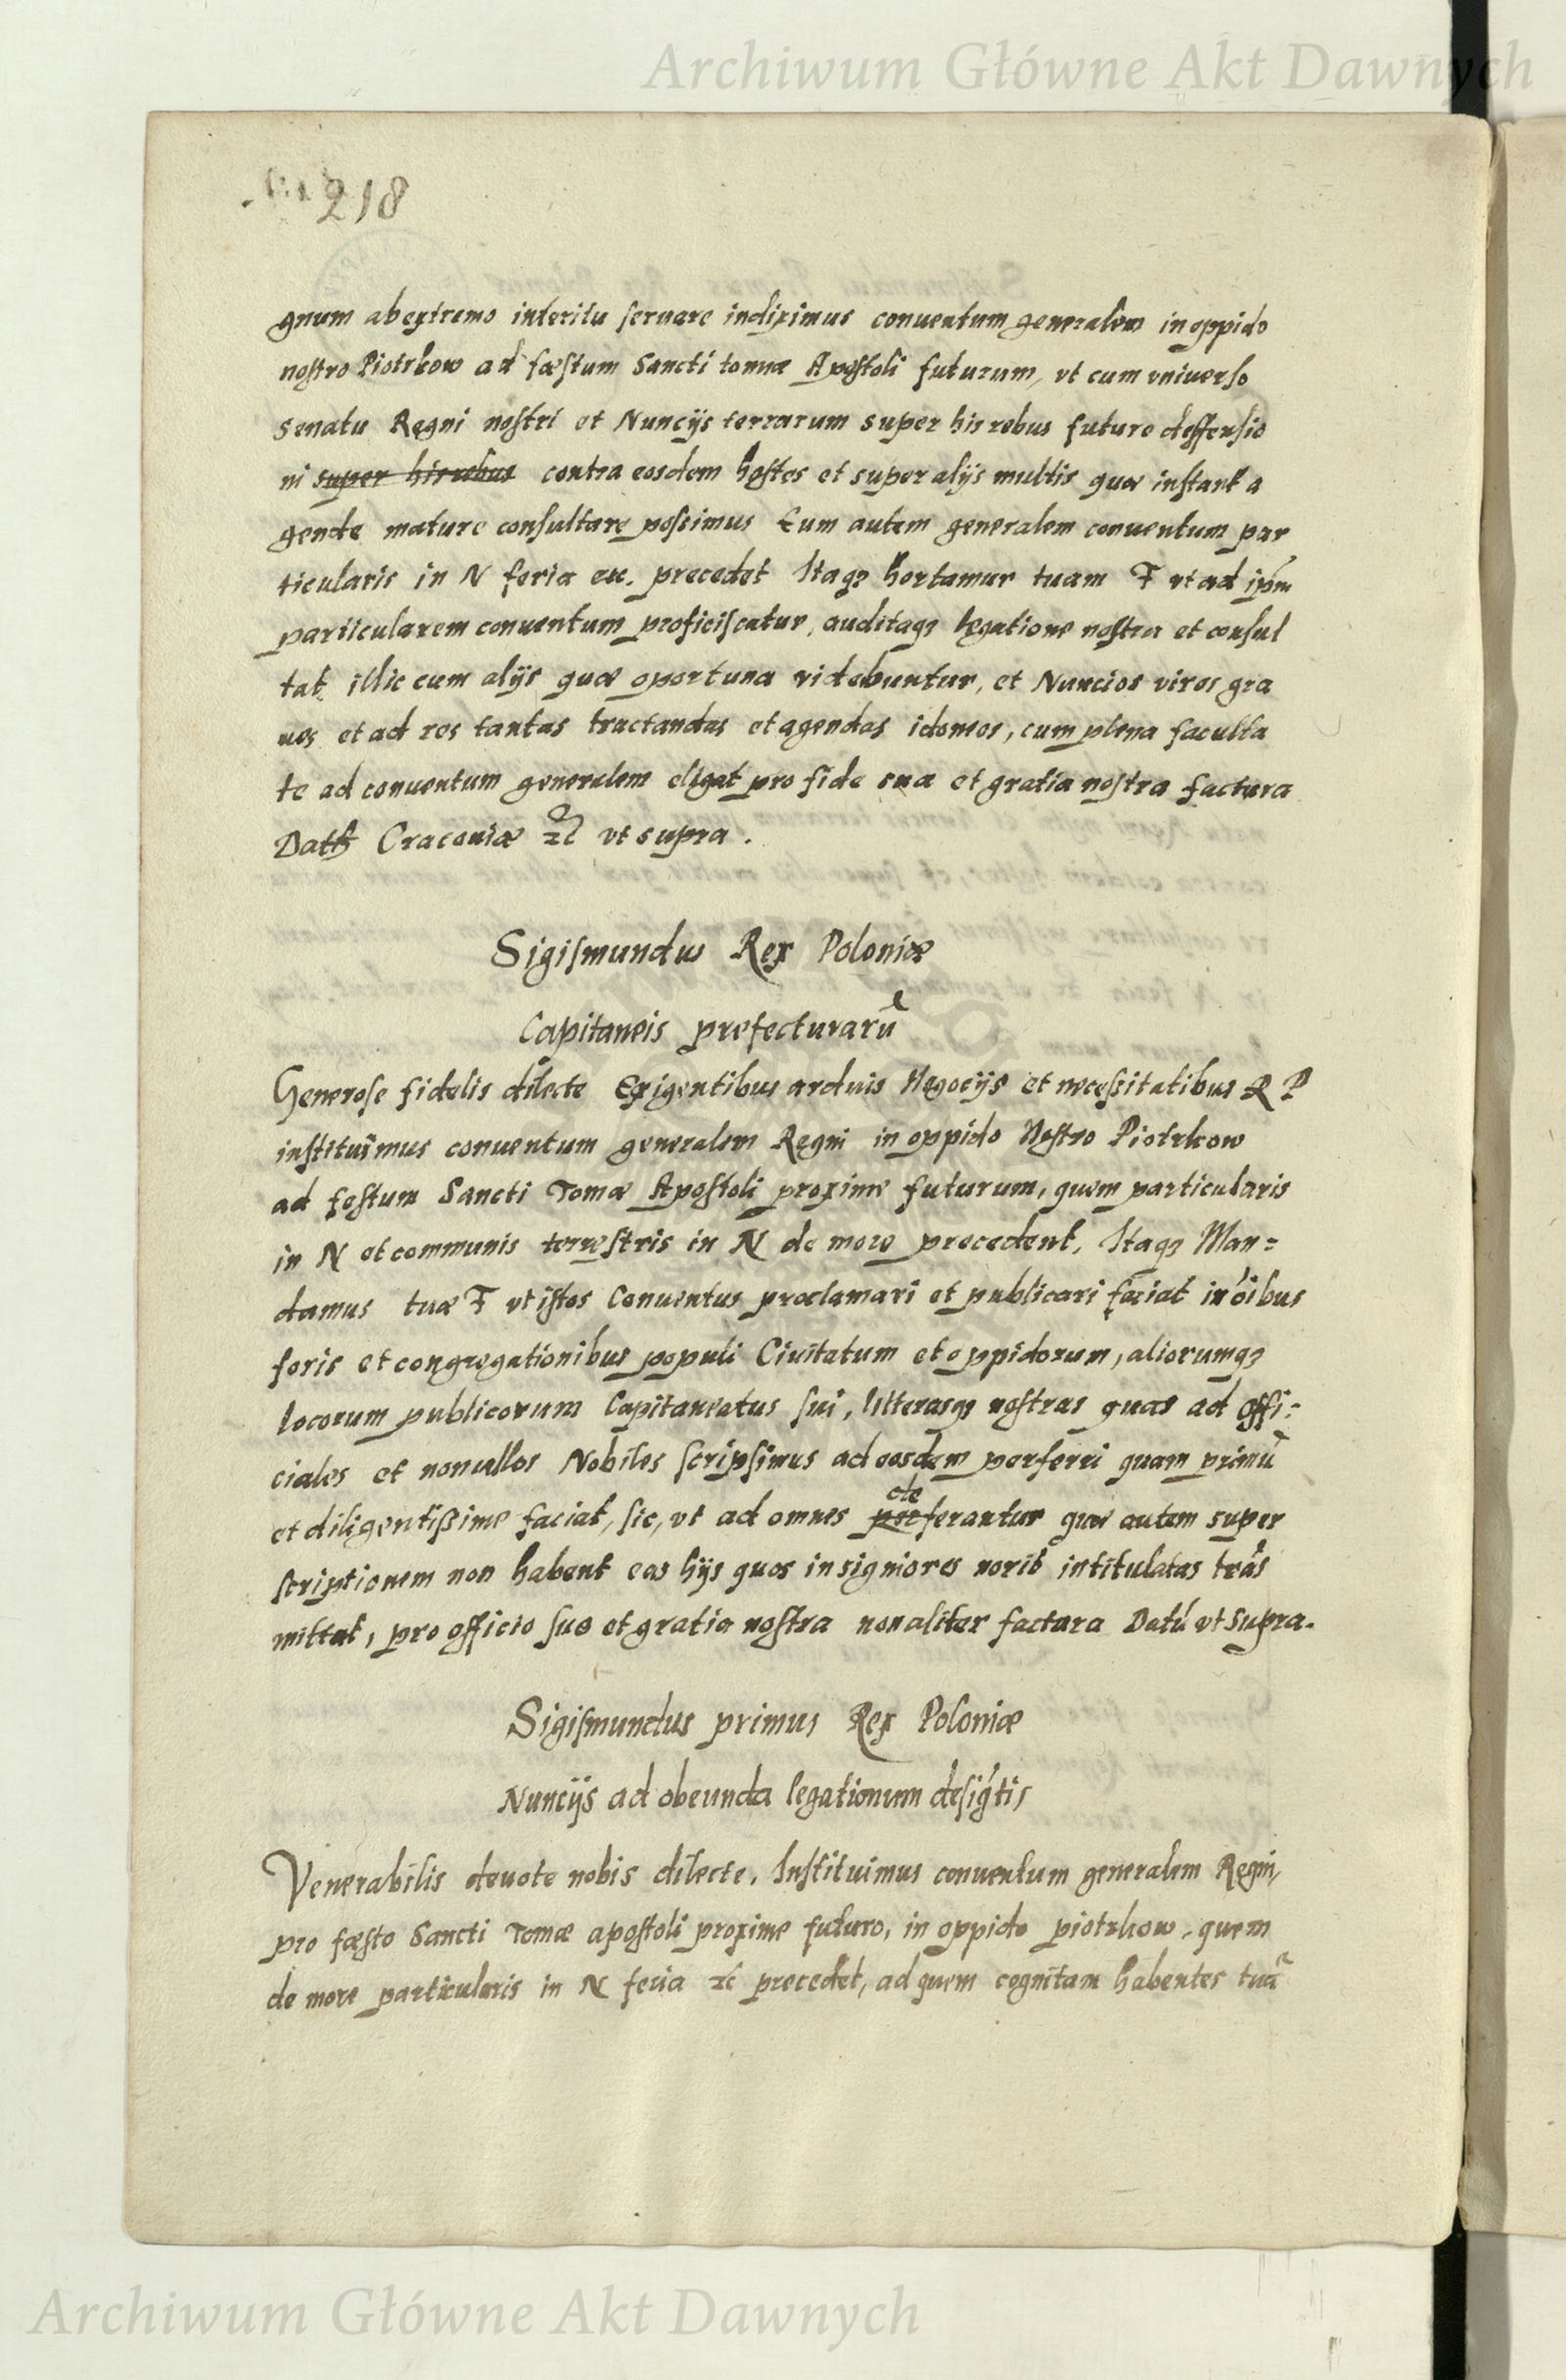 Archiwum Główne Akt Dawnych
218
gnum ab extremo interitu seruare indiximus conuentum generalem in oppido
nostro Piotrkow ad fæstum Sancti tomæ Apostoli futurum, vt cum vniuerso
senatu Regni nostri et Nuncijs terrarum super his rebus future deffensio
ni super his rebus contra eosdem hostes et super alijs multis quæ instant a
gende mature consultare possimus Eum autem generalem conuentum par
ticularis in N feria etc. precedet Itaqȝ hortamur tuam F vt ad ipm̄
particularem conuentum proficiscatur, auditaqȝ legatione nostra et consul
tat illic cum alijs quæ oportuna videbuntur, et Nuncios viros gra
ues et ad res tantas tractandas et agendas idoneos, cum plena faculta
te ad conuentum generalem eligat pro fide sua et gratia nostra factura
Datȝ Cracouiæ ꝛc̄ vt supra.
Sigismundus Rex Poloniæ
Capitaneis prefecturarū
Generose fidelis dilecte Exigentibus arduis Negocijs et necessitatibus R P
instituimus conuentum generalem Regni in oppido Nostro Piotrkow
ad festum Sancti Tomæ Apostoli proxime futurum, quem particularis
in N et communis terrestris in N de more precedent, Itaqȝ Man=
damus tuæ F vt istos Conuentus proclamari et publicari faciat in oībus
foris et congregationibus populi Ciuitatum et oppidorum, aliorumqȝ
locorum publicorum Capitaneatus sui, litterasqȝ nostras quas ad offi:
ciales et nonullos Nobiles scripsimus ad eosdem perferri quam primū
et diligentissime faciat, sic, vt ad omnes de ferantur quæ autem super
scriptionem non habent eas hijs quos insigniores norit intitulatas trās
mittat, pro officio suo et gratia nostra non aliter factura Datū vt supra.
Sigismundus primus Rex Poloniæ
Nuncijs ad obeunda legationum desigtis
Venerabilis deuote nobis dilecte, Instituimus conuentum generalem Regni,
pro fæsto Sancti Tomæ apostoli proxime futuro, in oppido piotrkow, quem
de more particularis in N feria ꝛc̄ precedet, ad quem cognitam habentes tuā
Archiwum Główne Akt Dawnych